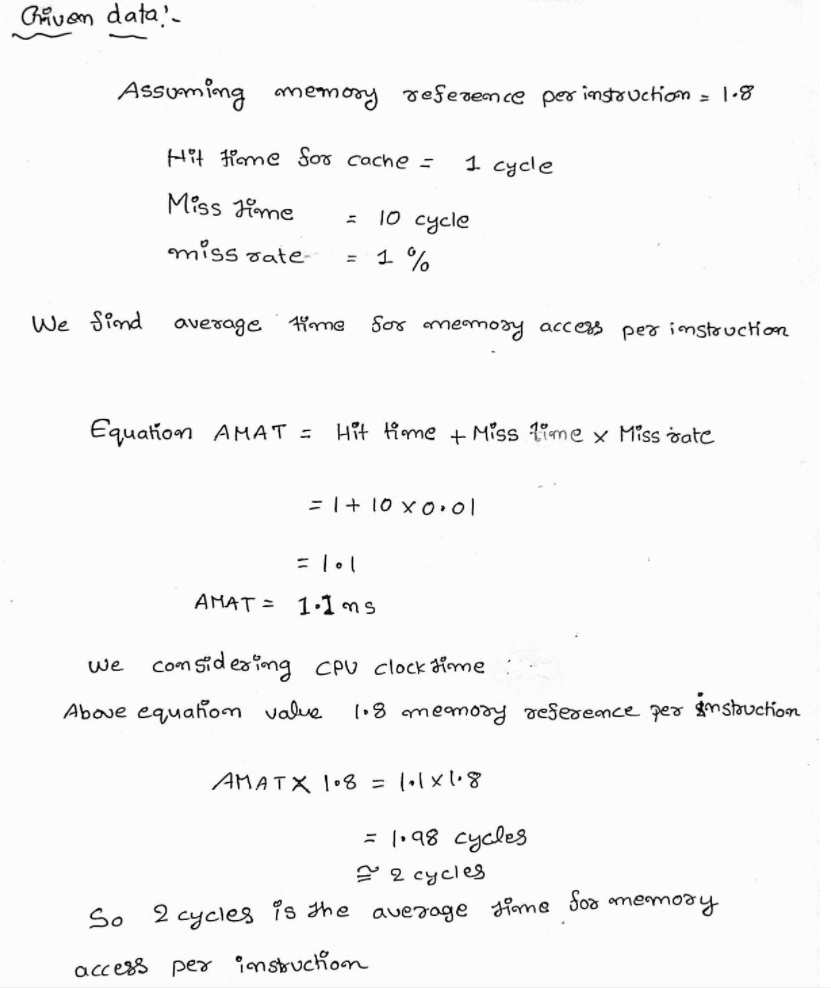 Given data:-
Assuming memory reference per instruction = 1.8
Hit time for cache = 1 cycle
Miss time = 10 cycle
miss rate = 1 %
We find average time for memory access per instruction
Equation AMAT = Hit time + Miss time x Miss rate
= 1 + 10 x 0.01
= 1.1
AMAT = 1.1 ns
we considering CPU clock time :
Above equation value 1.8 memory reference per instruction
AMAT X 1.8 = 1.1 x 1.8
= 1.98 cycles
≅ 2 cycles
So 2 cycles is the average time for memory
access per instruction